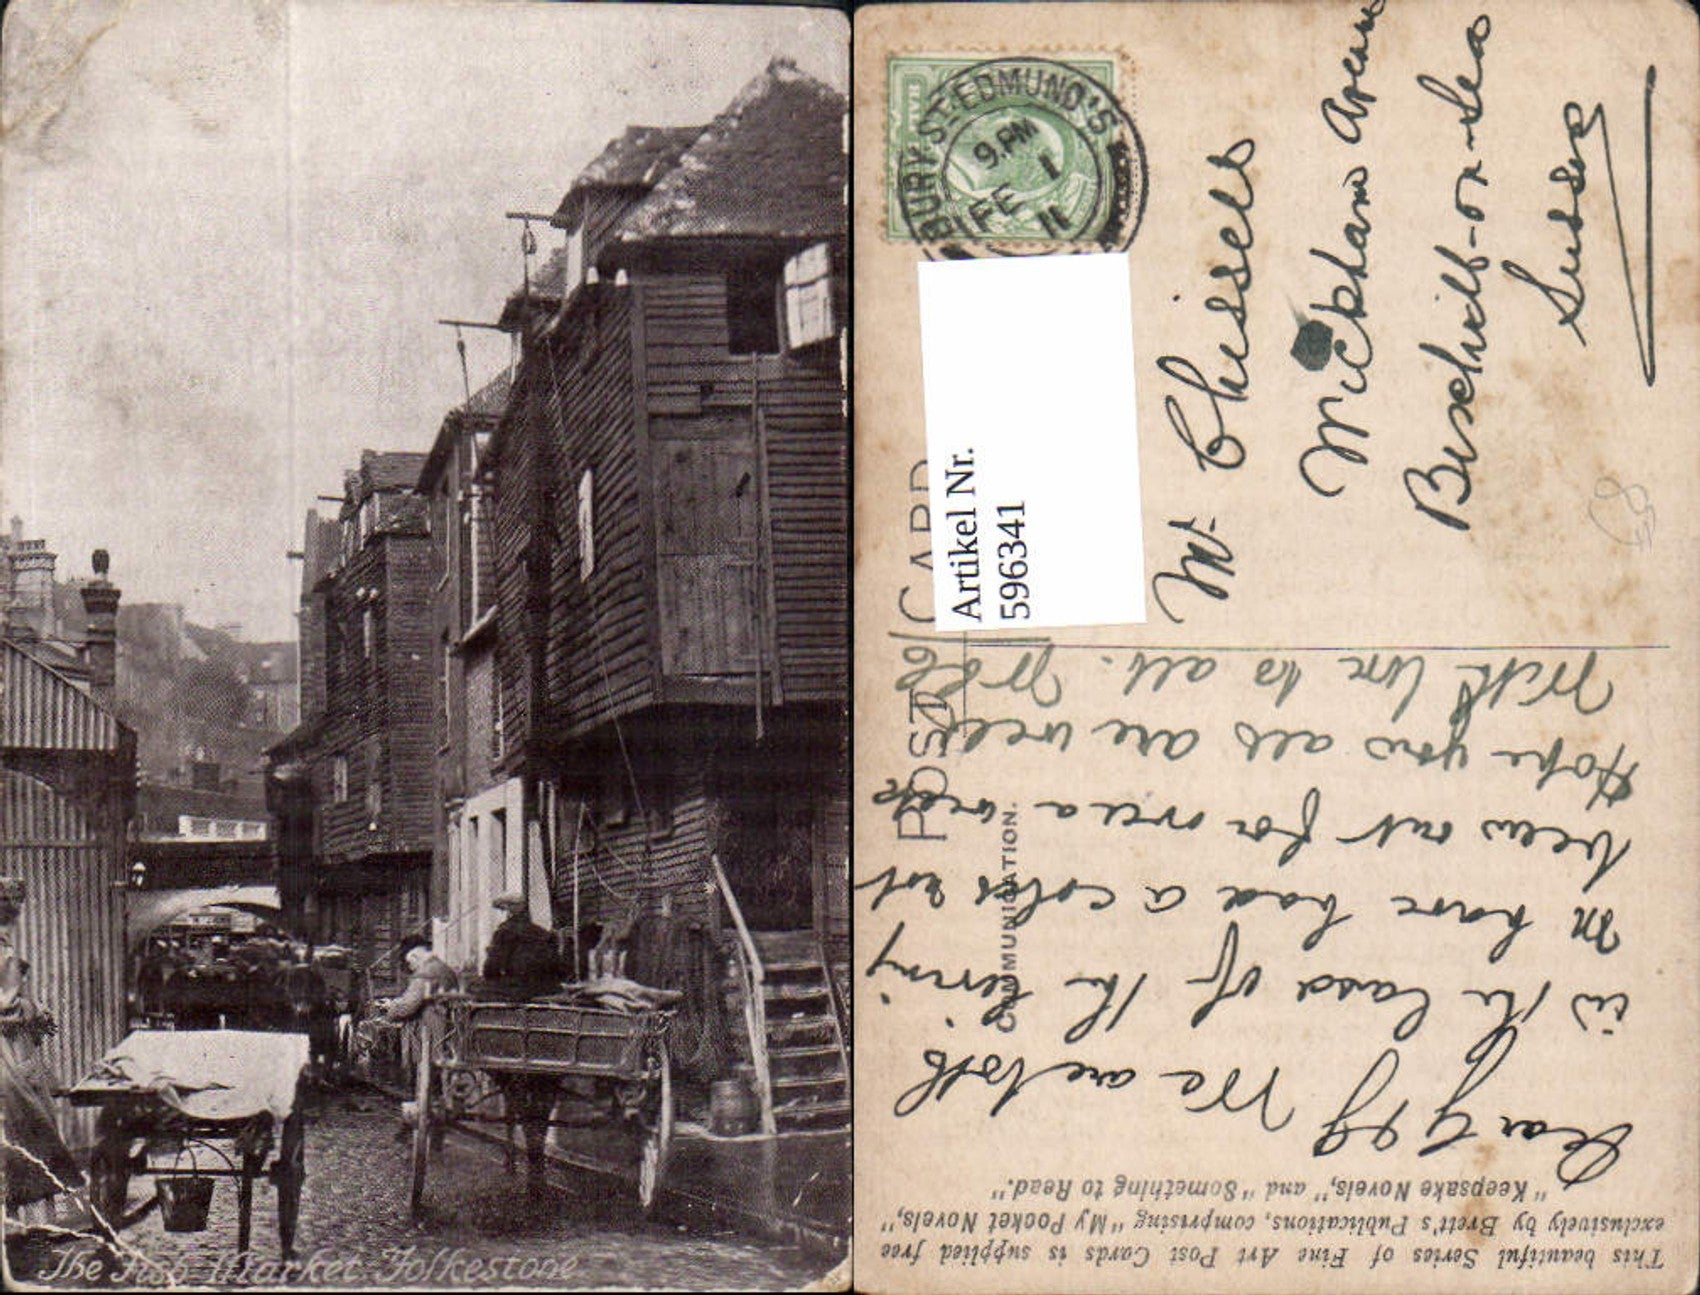 The Fish Market. Folkestone
BURY ST. EDMUND'S
9. PM
FE 1
11
POST CARD
COMMUNICATION.
Artikel Nr.
596341
Mr Chissell
Wickham Avenue
Bexhill-on-Sea
Sussex
68
This beautiful Series of Fine Art Post Cards is supplied free
exclusively by Brett's Publications, comprising "My Pocket Novels,"
"Keepsake Novels," and "Something to Read."
Dear We are both
in the land of the living
have had a cold not
been out for over a week
Hope you all are well
With love to all.